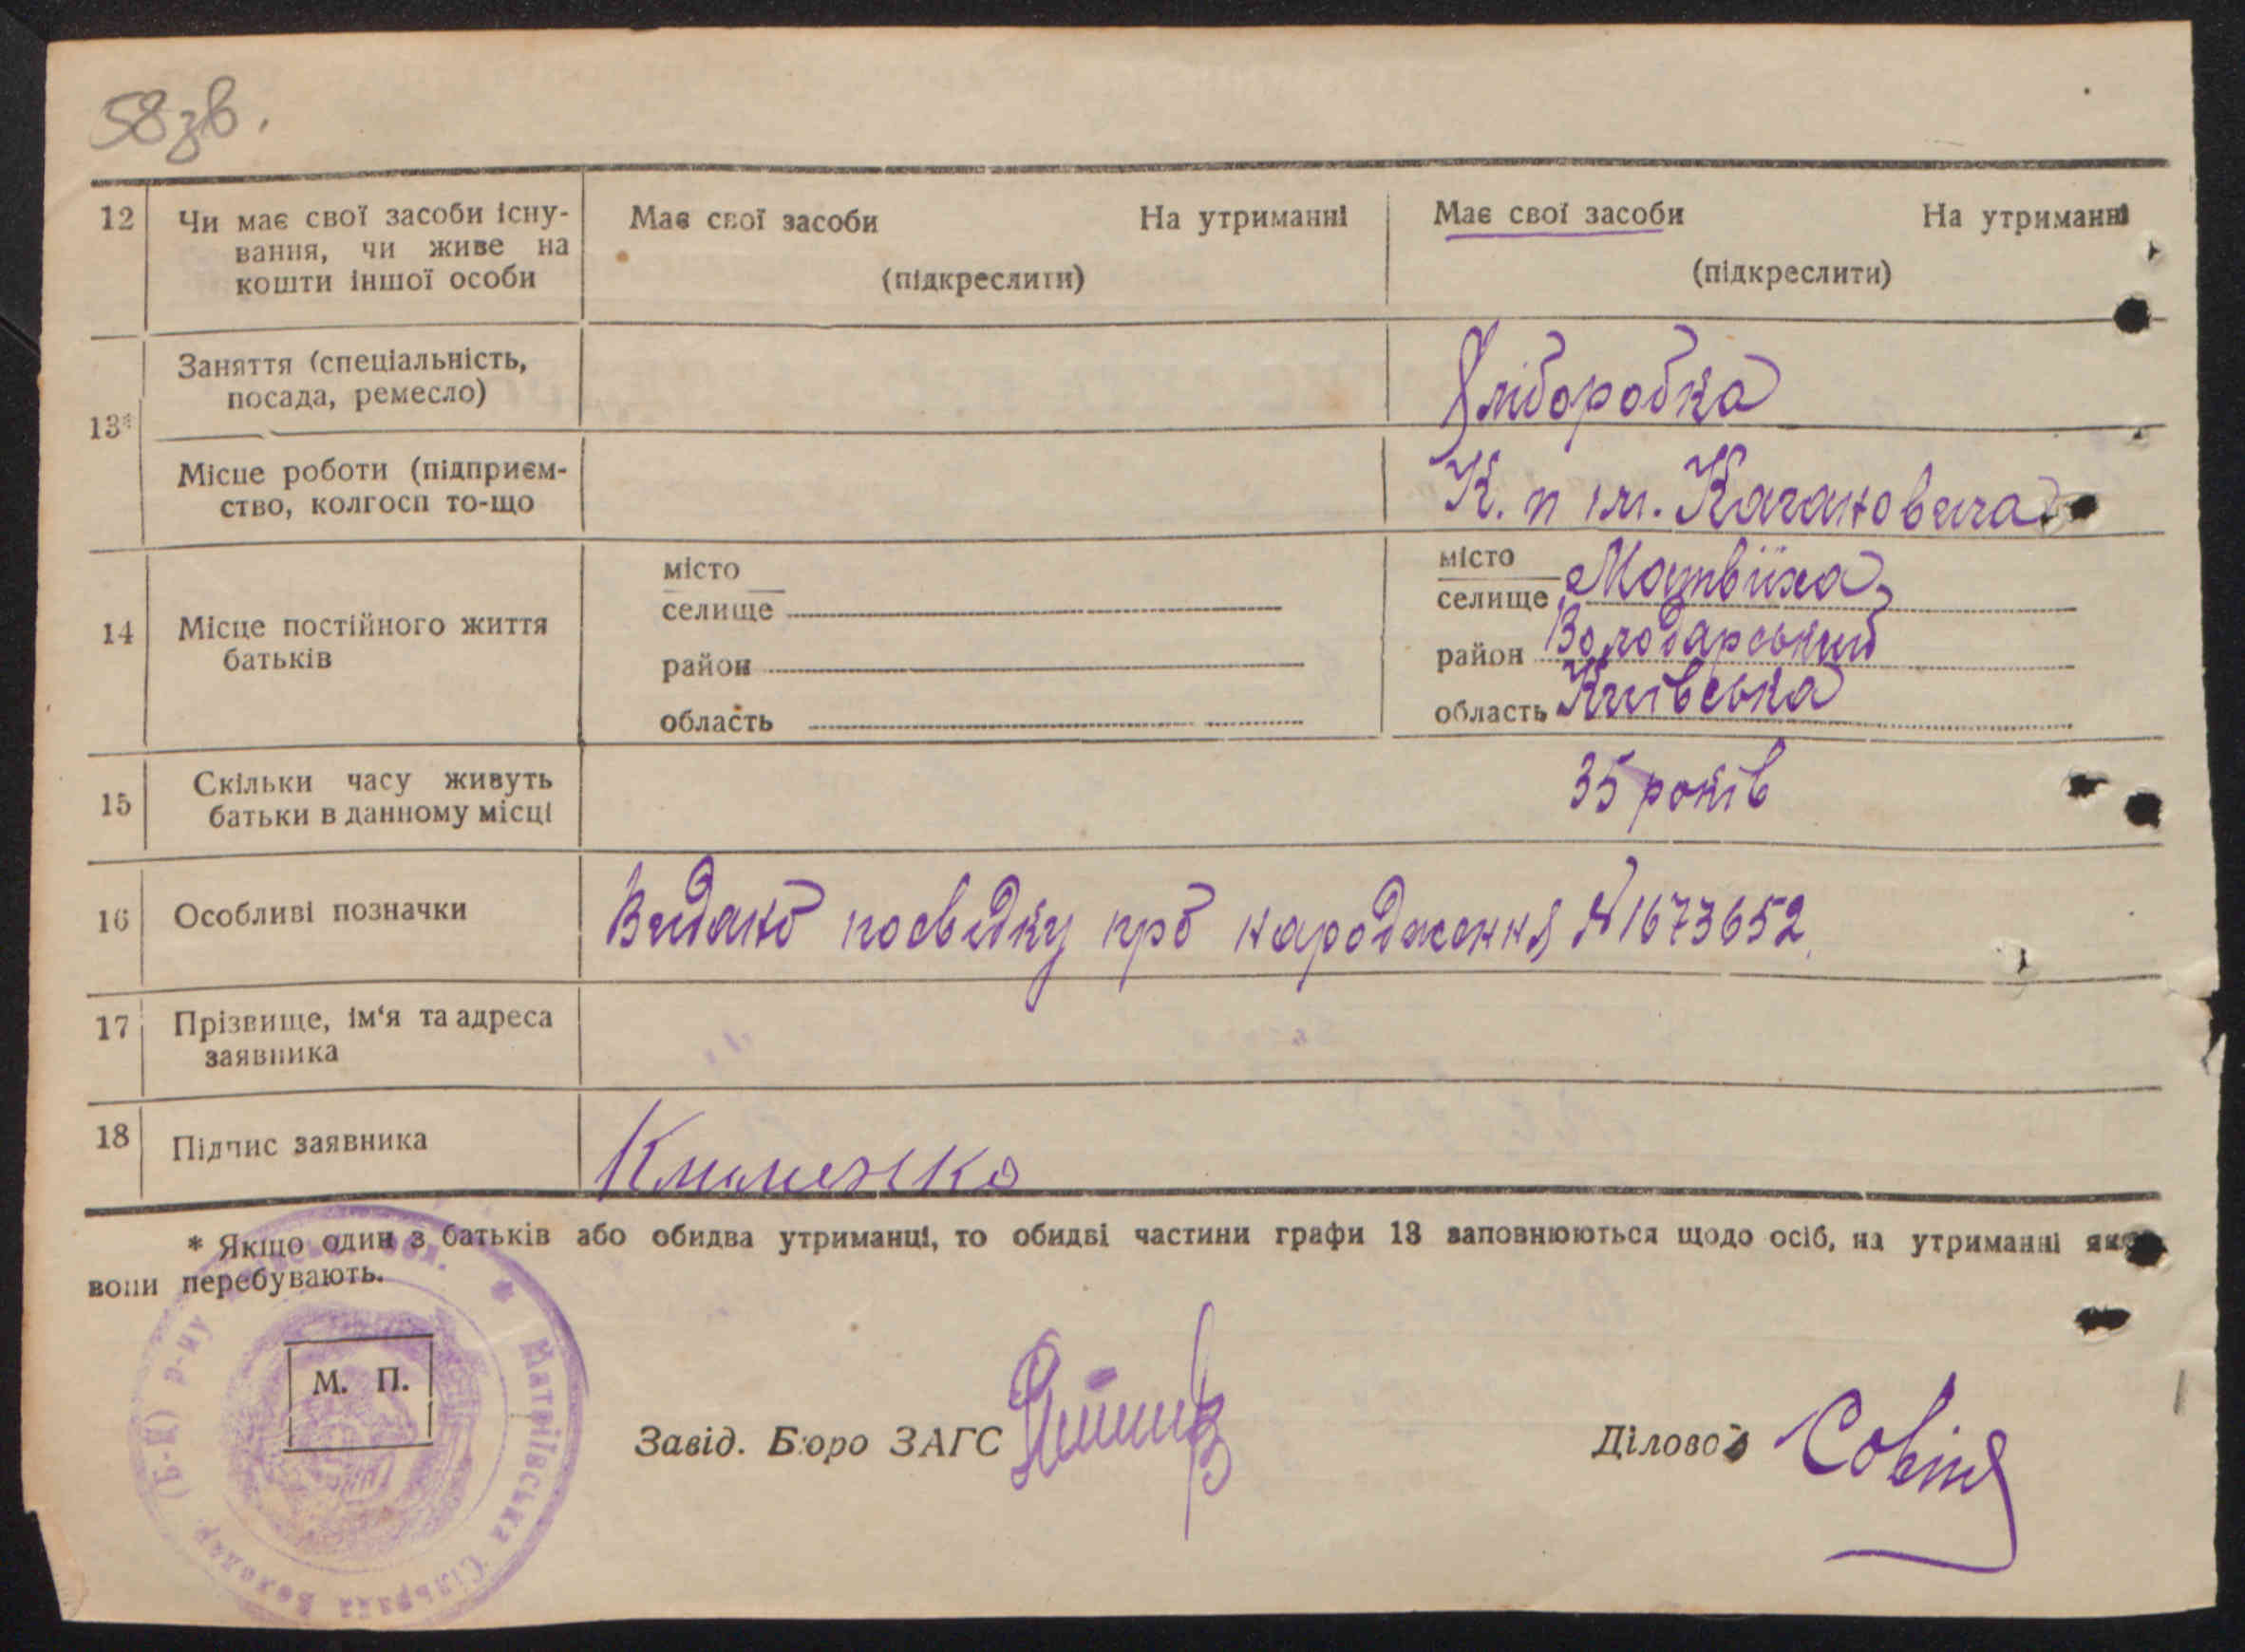 58 зв.
12 Чи має свої засоби існу-
вання, чи живе на
кошти іншої особи
Має свої засоби На утриманні
(підкреслити)
Має свої засоби На утриманні
(підкреслити)
13*
Заняття (спеціальність,
посада, ремесло)
Хліборобка
Місце роботи (підприєм-
ство, колгосп то-що
К. п ім. Кагановича
14 Місце постійного життя
батьків
місто
селище
район
область
місто
селище Матвіїха
район Володарський
область Київська
15 Скільки часу живуть
батьки в данному місці
35 років
16 Особливі позначки
Видано посвідку про народження № 1673652.
17 Прізвище, ім'я та адреса
заявника
18 Підпис заявника
Клименко
* Якщо один з батьків або обидва утриманці, то обидві частини графи 13 заповнюються щодо осіб, на утриманні яких
вони перебувають.
М. П.
Матвіївська Сільрада Володар. (Б-Ц) р-ну
Завід. Бюро ЗАГС
Діловод